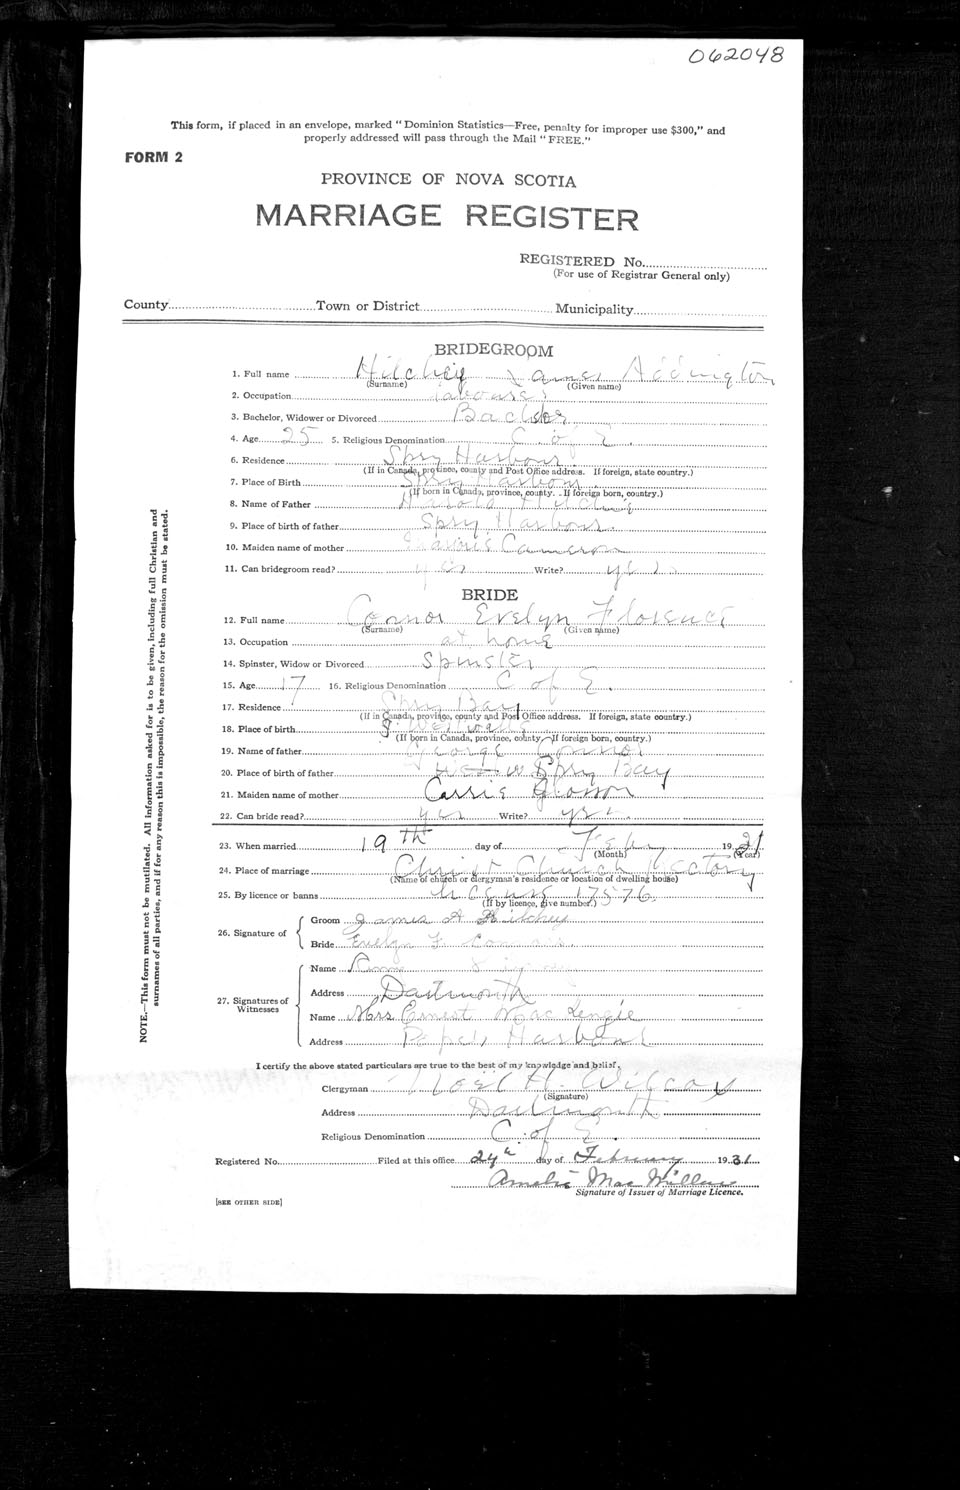 062048
This form, if placed in an envelope, marked "Dominion Statistics—Free, penalty for improper use $300," and
properly addressed will pass through the Mail "FREE."
FORM 2
PROVINCE OF NOVA SCOTIA
MARRIAGE REGISTER
REGISTERED No.
(For use of Registrar General only)
County Town or District Municipality
BRIDEGROOM
1. Full name Hilchey James Addington
(Surname) (Given name)
2. Occupation Labourer
3. Bachelor, Widower or Divorced Bachelor
4. Age 25 5. Religious Denomination C. of E.
6. Residence Spry Harbour
(If in Canada, province, county and Post Office address. If foreign, state country.)
7. Place of Birth Spry Harbour
(If born in Canada, province, county. If foreign born, country.)
8. Name of Father Hilchey
9. Place of birth of father Spry Harbour.
10. Maiden name of mother Cameron
11. Can bridegroom read? yes Write? yes
BRIDE
12. Full name Connor Evelyn Florence
(Surname) (Given name)
13. Occupation at home
14. Spinster, Widow or Divorced Spinster
15. Age 17 16. Religious Denomination C of E.
17. Residence Spry Bay
(If in Canada, province, county and Post Office address. If foreign, state country.)
18. Place of birth
(If born in Canada, province, county. If foreign born, country.)
19. Name of father George Connor
20. Place of birth of father Spry Bay
21. Maiden name of mother Carrie
22. Can bride read? yes Write? yes
23. When married 19th day of Feby 1931
(Month) (Year)
24. Place of marriage Christ Church Rectory
(Name of church or clergyman's residence or location of dwelling house)
25. By licence or banns License 17576
(If by licence, give number.)
26. Signature of
Groom James A Hilchey
Bride Evelyn F Connor
27. Signatures of Witnesses
Name
Address Dartmouth
Name Mrs Ernest
Address Popes Harbour
I certify the above stated particulars are true to the best of my knowledge and belief.
Clergyman Noel H. Wilcox
(Signature)
Address Dartmouth
Religious Denomination C. of E.
Registered No. Filed at this office 24th day of February 1931
Amelia MacMillan
Signature of Issuer of Marriage Licence.
[SEE OTHER SIDE]
NOTE.—This form must not be mutilated. All information asked for is to be given, including full Christian and
surnames of all parties, and if for any reason this is impossible, the reason for the omission must be stated.